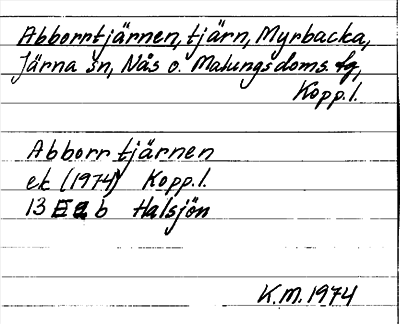 Abborrtjärnen, tjärn, Myrbacka,
Järna sn, Nås o. Malungs doms. fg,
Kopp. l.
Abborrtjärnen
ek (1974) Kopp. l.
13 E a b Halsjön
K.M. 1974